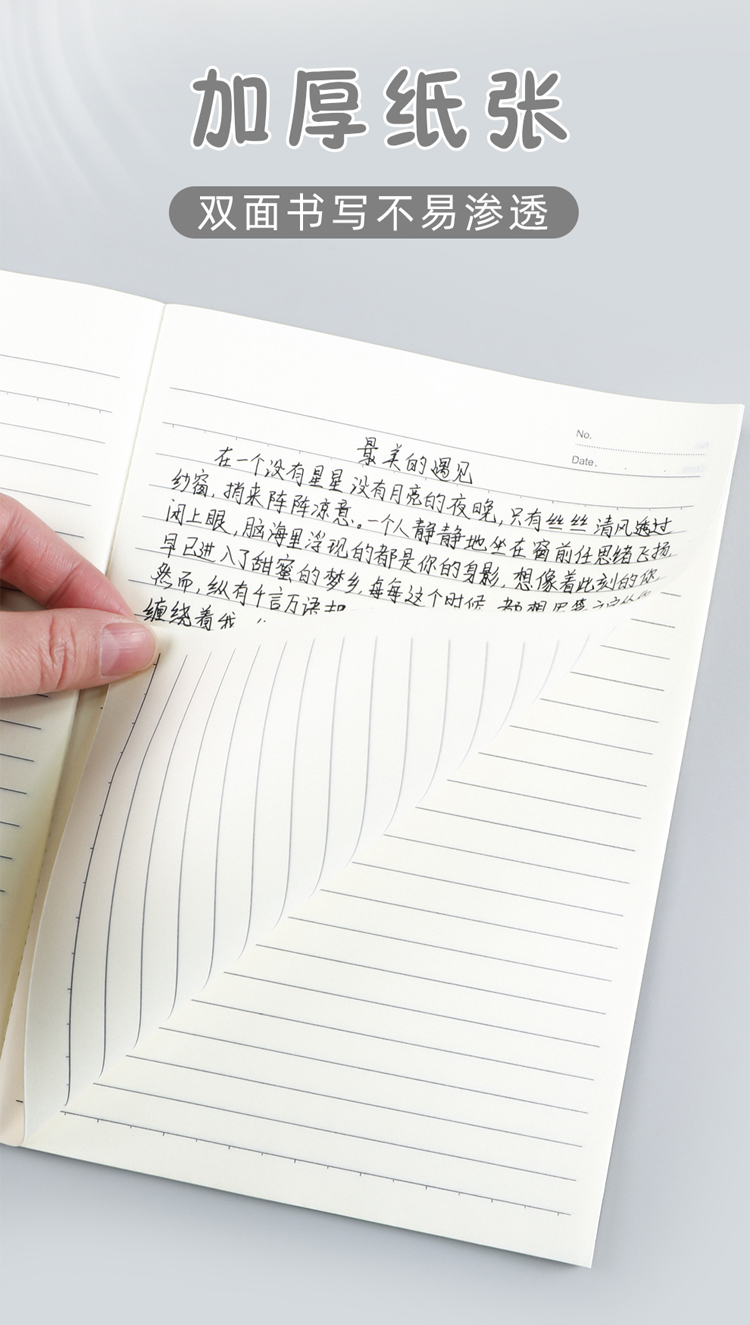 加厚纸张
双面书写不易渗透
No.
Date.
最美的遇见
在一个没有星星没有月亮的夜晚，只有丝丝清风透过
纱窗，捎来阵阵凉意。一个人静静地坐在窗前任思绪飞扬
闭上眼，脑海里浮现的都是你的身影，想像着此刻的你
早已进入了甜蜜的梦乡，每每这个时候
然而，纵有千言万语却
缠绕着我